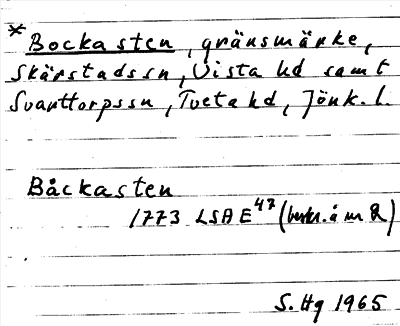 *Bockasten, gränsmärke,
Skärstadssn, Vista hd samt
Svarttorpssn, Tveta hd, Jönk. l.
Båckasten
1773 LSA E47 (beskr. å nr 2)
S. Hg 1965